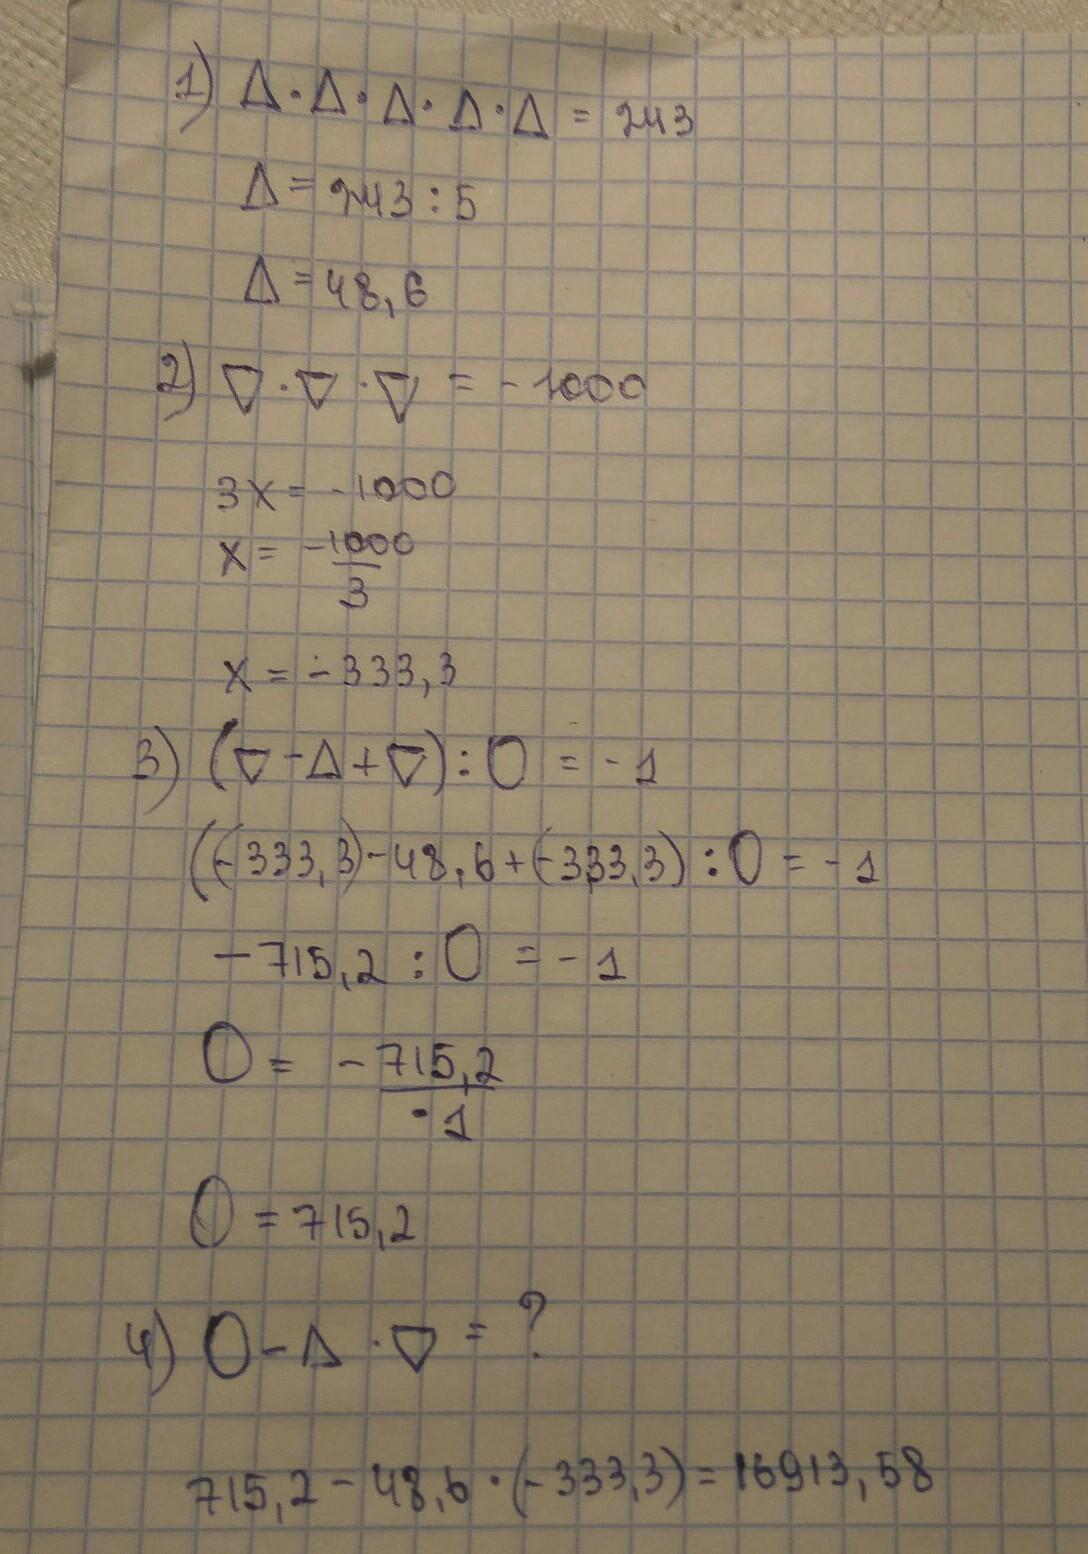 1) Δ·Δ·Δ·Δ·Δ = 243
Δ = 243 : 5
Δ = 48,6
2) ∇·∇·∇ = -1000
3x = -1000
x = -1000/3
x = -333,3
3) (∇-Δ+∇):O = -1
((-333,3)-48,6+(-333,3):O = -1
-715,2 : O = -1
O = -715,2/-1
O = 715,2
4) O-Δ·∇ = ?
715,2-48,6·(-333,3)=16913,58